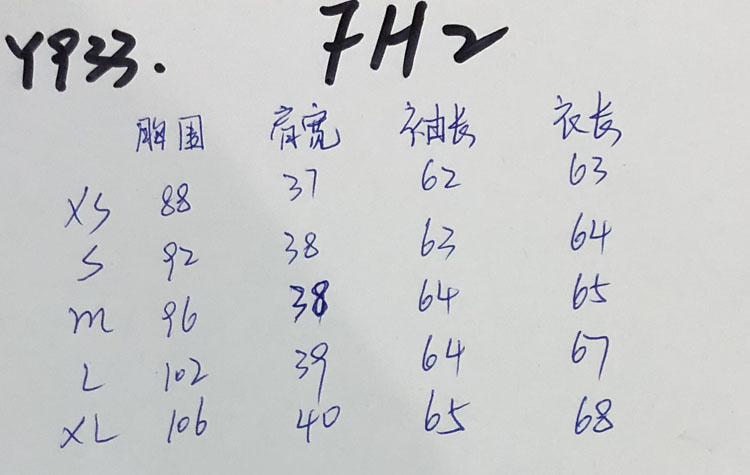 Y933. FH2
胸围 肩宽 袖长 衣长
XS 88 37 62 63
S 92 38 63 64
m 96 38 64 65
L 102 39 64 67
XL 106 40 65 68